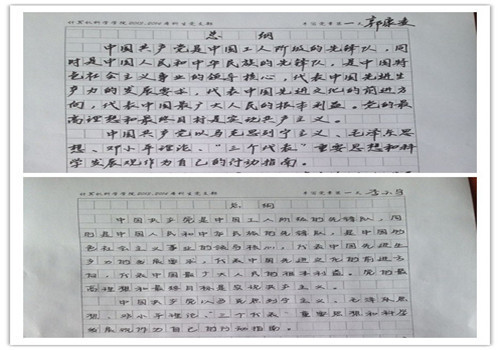 计算机科学学院2012-2014届研究生党支部 手抄党章第一天 郭康英
总 纲
中国共产党是中国工人阶级的先锋队，同
时是中国人民和中华民族的先锋队，是中国特
色社会主义事业的领导核心，代表中国先进生
产力的发展要求，代表中国先进文化的前进方
向，代表中国最广大人民的根本利益。党的最
高理想和最终目标是实现共产主义。
中国共产党以马克思列宁主义、毛泽东思
想、邓小平理论、“三个代表”重要思想和科
学发展观作为自己的行动指南。
手抄党章第一天
总 纲
中国共产党是中国工人阶级的先锋队，同
时是中国人民和中华民族的先锋队，是中国特
色社会主义事业的领导核心，代表中国先进生
产力的发展要求，代表中国先进文化的前进方
向，代表中国最广大人民的根本利益。党的最
高理想和最终目标是实现共产主义。
中国共产党以马克思列宁主义、毛泽东思
想、邓小平理论、“三个代表”重要思想和科学
发展观作为自己的行动指南。